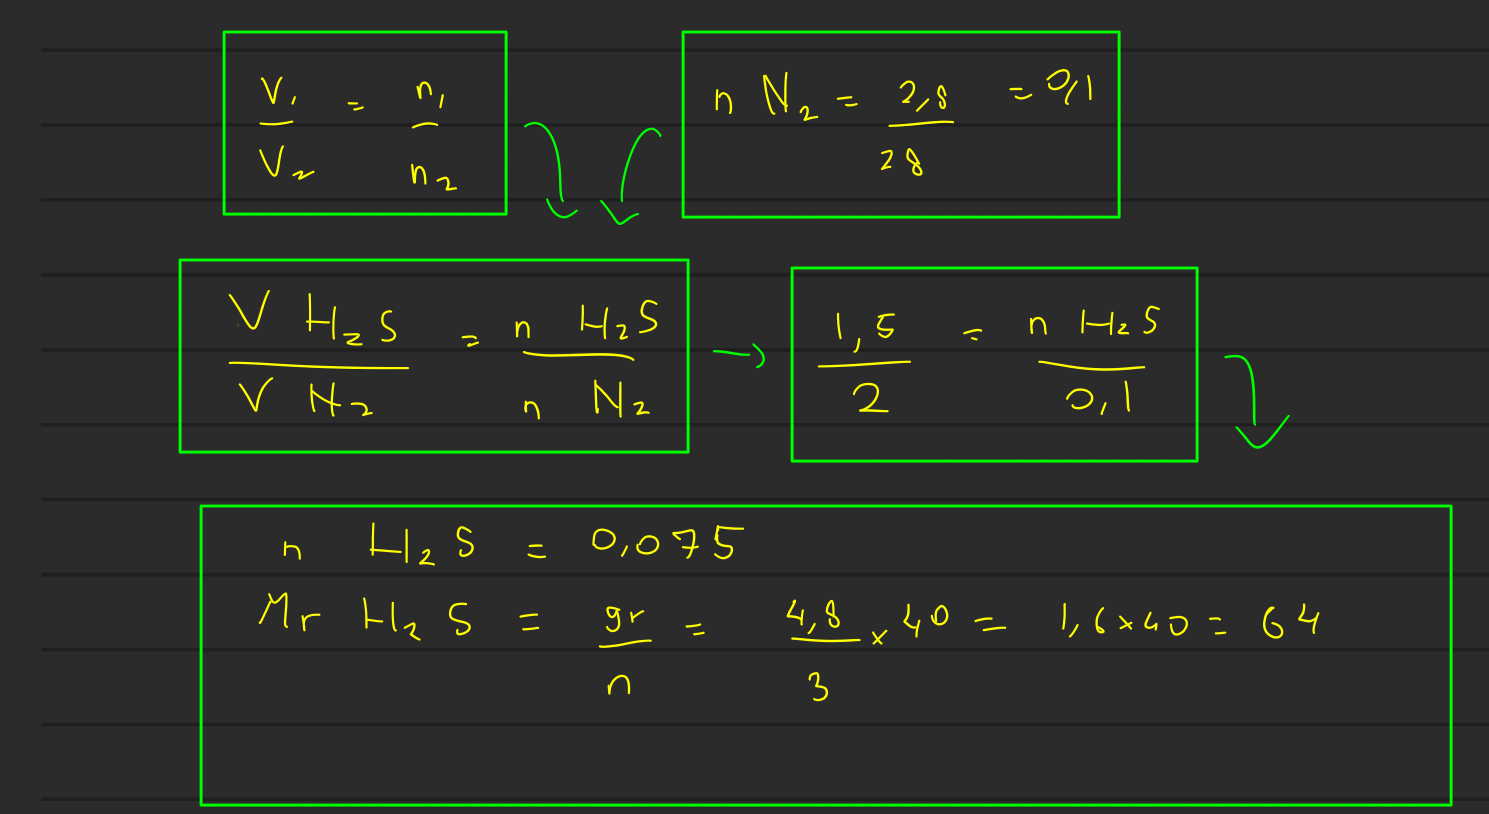 V₁/V₂ = n₁/n₂
n N₂ = 2,8/28 = 0,1
V H₂S/V N₂ = n H₂S/n N₂
1,5/2 = n H₂S/0,1
n H₂S = 0,075
Mr H₂S = gr/n = 4,8/3 × 40 = 1,6 × 40 = 64